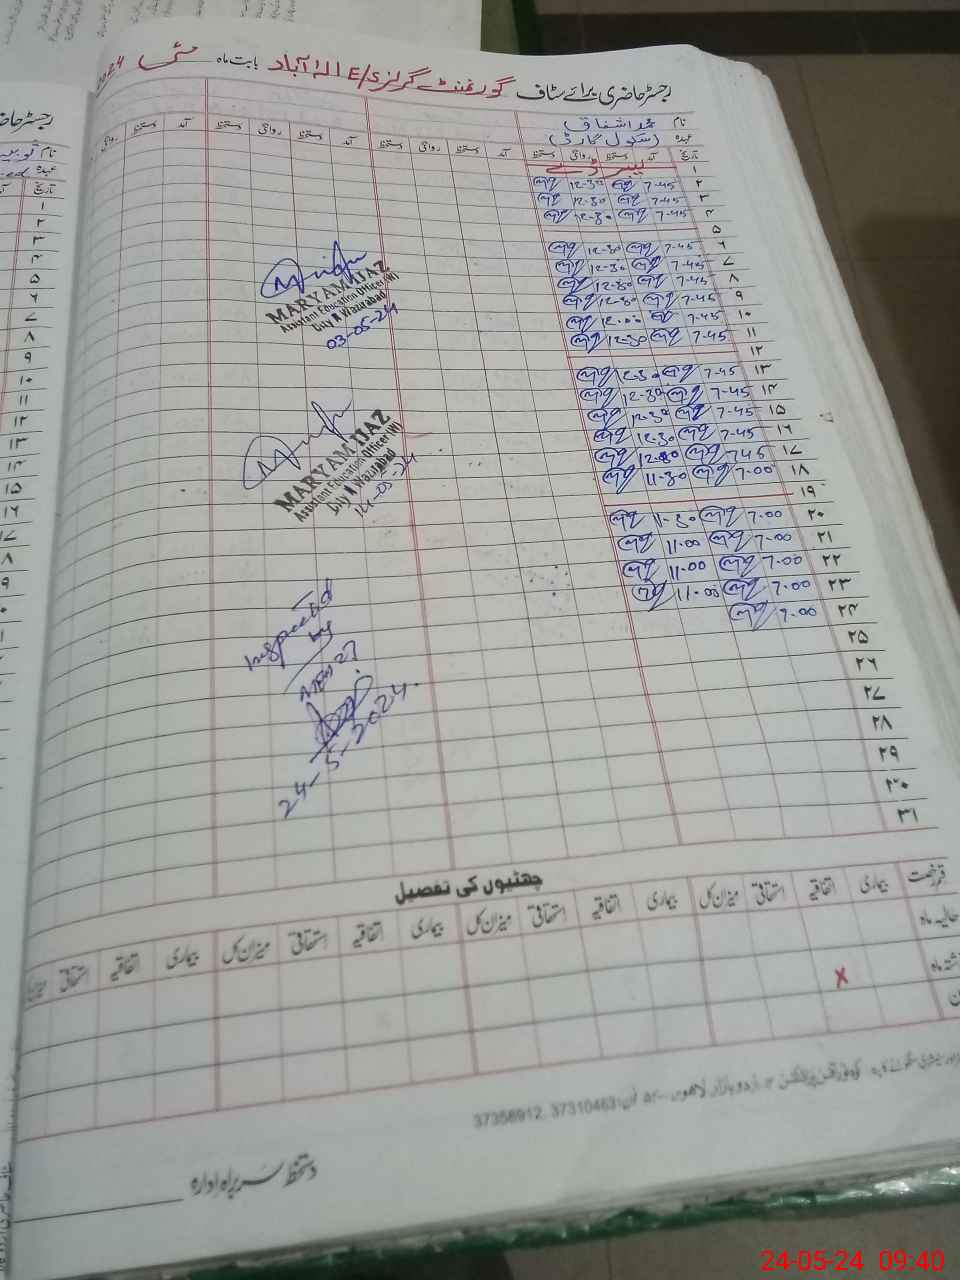 رجسٹر حاضری برائے سٹاف گورنمنٹ گرلز E/S الہ آباد بابت ماہ مئی 2024
نام محمد اشفاق
عہدہ (سکول گارڈ)
تاریخ آمد دستخط روانگی دستخط آمد دستخط روانگی دستخط آمد دستخط روانگی دستخط آمد دستخط روانگی
۱ لیبر ڈے
۲ 7-45 12-30
۳ 7-45 12-30
۴ 7-45 12-30
۵
۶ 7-45 12-30
۷ 7-45 12-30
۸ 7-45 12-30
۹ 7-45 12-30
۱۰ 7-45 12-00
۱۱ 7-45 12-30
۱۲
۱۳ 7-45 12-30
۱۴ 7-45 12-30
۱۵ 7-45 12-30
۱۶ 7-45 12-30
۱۷ 745 12-30
۱۸ 7-00 11-30
۱۹
۲۰ 7-00 11-30
۲۱ 7-00 11-00
۲۲ 7-00 11-00
۲۳ 7-00 11-00
۲۴ 7-00
۲۵
۲۶
۲۷
۲۸
۲۹
۳۰
۳۱
MARYAM IJAZ
Assistant Education Officer (W)
City N Wazirabad
03-05-24
MARYAM IJAZ
Assistant Education Officer (W)
City N Wazirabad
14-05-24
Inspected
by
24-5-2024.
چھٹیوں کی تفصیل
قسم رخصت بیماری اتفاقیہ استحقاقی میزان کل بیماری اتفاقیہ استحقاقی میزان کل بیماری اتفاقیہ استحقاقی میزان کل بیماری اتفاقیہ استحقاقی میزان
حالیہ ماہ
شتہ ماہ x
اردو بازار لاہور 37356912, 37310463
دستخط سربراہ ادارہ
رجسٹر حاضر
نام
عہدہ
تاریخ
۱
۲
۳
۴
۵
۶
۷
۸
۹
۱۰
۱۱
۱۲
۱۳
۱۴
۱۵
۱۶
24-05-24 09:40